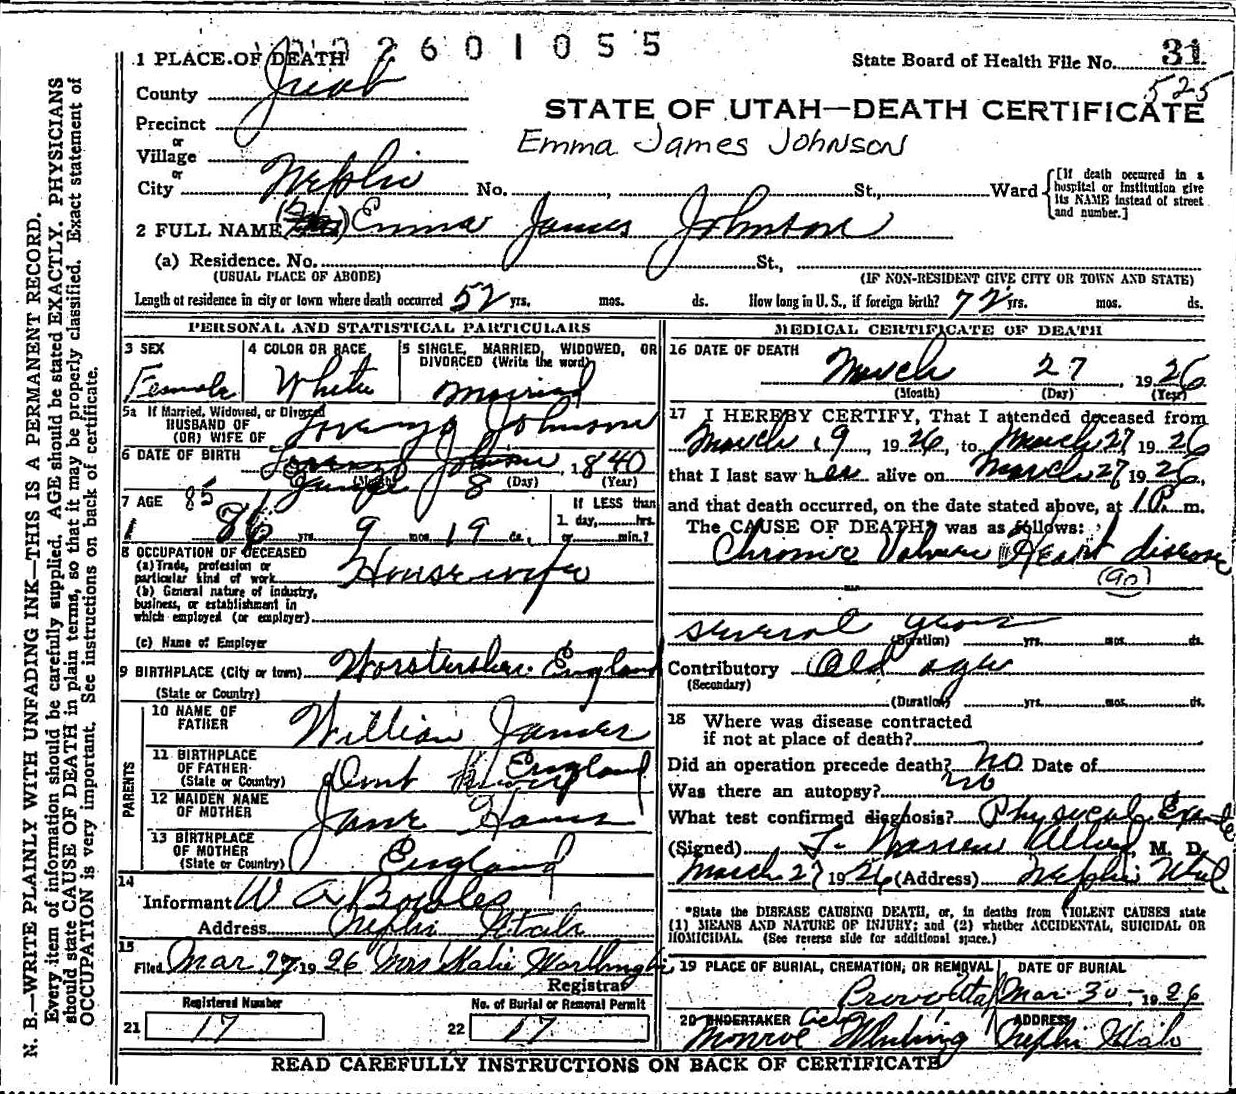 2601055
State Board of Health File No. 31
525
1 PLACE OF DEATH
County Juab
STATE OF UTAH—DEATH CERTIFICATE
Precinct
or
Village
Emma James Johnson
or
City Nephi No. St., Ward
[If death occurred in a hospital or institution give its NAME instead of street and number.]
2 FULL NAME (Mrs) Emma James Johnson
(a) Residence. No. St.,
(USUAL PLACE OF ABODE) (IF NON-RESIDENT GIVE CITY OR TOWN AND STATE)
Length of residence in city or town where death occurred 52 yrs. mos. ds. How long in U. S., if foreign birth? 72 yrs. mos. ds.
PERSONAL AND STATISTICAL PARTICULARS
3 SEX
Female
4 COLOR OR RACE
White
5 SINGLE, MARRIED, WIDOWED, OR DIVORCED (Write the word)
Married
5a If Married, Widowed, or Divorced
HUSBAND OF
(OR) WIFE OF Lorenzo Johnson
6 DATE OF BIRTH Lorenzo Johnson, 1840
June 8
(Month) (Day) (Year)
7 AGE 85
86 yrs. 9 mos. 19 ds.
If LESS than
1 day, hrs.
or min.?
8 OCCUPATION OF DECEASED
(a) Trade, profession or
particular kind of work Housewife
(b) General nature of industry,
business, or establishment in
which employed (or employer)
(c) Name of Employer
9 BIRTHPLACE (City or town) England
(State or Country)
PARENTS
10 NAME OF
FATHER William James
11 BIRTHPLACE
OF FATHER England
(State or Country) Dont know
12 MAIDEN NAME
OF MOTHER Jane Haines
13 BIRTHPLACE
OF MOTHER
(State or Country) England
14
Informant W A Bowles
Address Nephi Utah
15
Filed Mar 27 1926 Mrs Katie Worthington
Registrar
Registered Number
21 17
No. of Burial or Removal Permit
22 17
MEDICAL CERTIFICATE OF DEATH
16 DATE OF DEATH
March 27, 1926
(Month) (Day) (Year)
17 I HEREBY CERTIFY, That I attended deceased from
March 9 1926, to March 27 1926
that I last saw her alive on March 27 1926,
and that death occurred, on the date stated above, at 1 P. m.
The CAUSE OF DEATH* was as follows:
Chronic Valvular Heart disease
(90)
several years
(Duration) yrs. mos. ds.
Contributory Old age
(Secondary)
(Duration) yrs. mos. ds.
18 Where was disease contracted
if not at place of death?
Did an operation precede death? no Date of
Was there an autopsy? no
What test confirmed diagnosis? Physical Exam
(Signed) T. Warren Allred, M. D.
March 27 1926 (Address) Nephi Utah
*State the DISEASE CAUSING DEATH, or, in deaths from VIOLENT CAUSES state
(1) MEANS AND NATURE OF INJURY; and (2) whether ACCIDENTAL, SUICIDAL OR
HOMICIDAL. (See reverse side for additional space.)
19 PLACE OF BURIAL, CREMATION, OR REMOVAL
Provo Utah
DATE OF BURIAL
Mar 30-, 1926
20 UNDERTAKER
Monroe
ADDRESS
Nephi Utah
READ CAREFULLY INSTRUCTIONS ON BACK OF CERTIFICATE
N. B.—WRITE PLAINLY WITH UNFADING INK—THIS IS A PERMANENT RECORD.
Every item of information should be carefully supplied. AGE should be stated EXACTLY. PHYSICIANS
should state CAUSE OF DEATH in plain terms, so that it may be properly classified. Exact statement of
OCCUPATION is very important. See instructions on back of certificate.